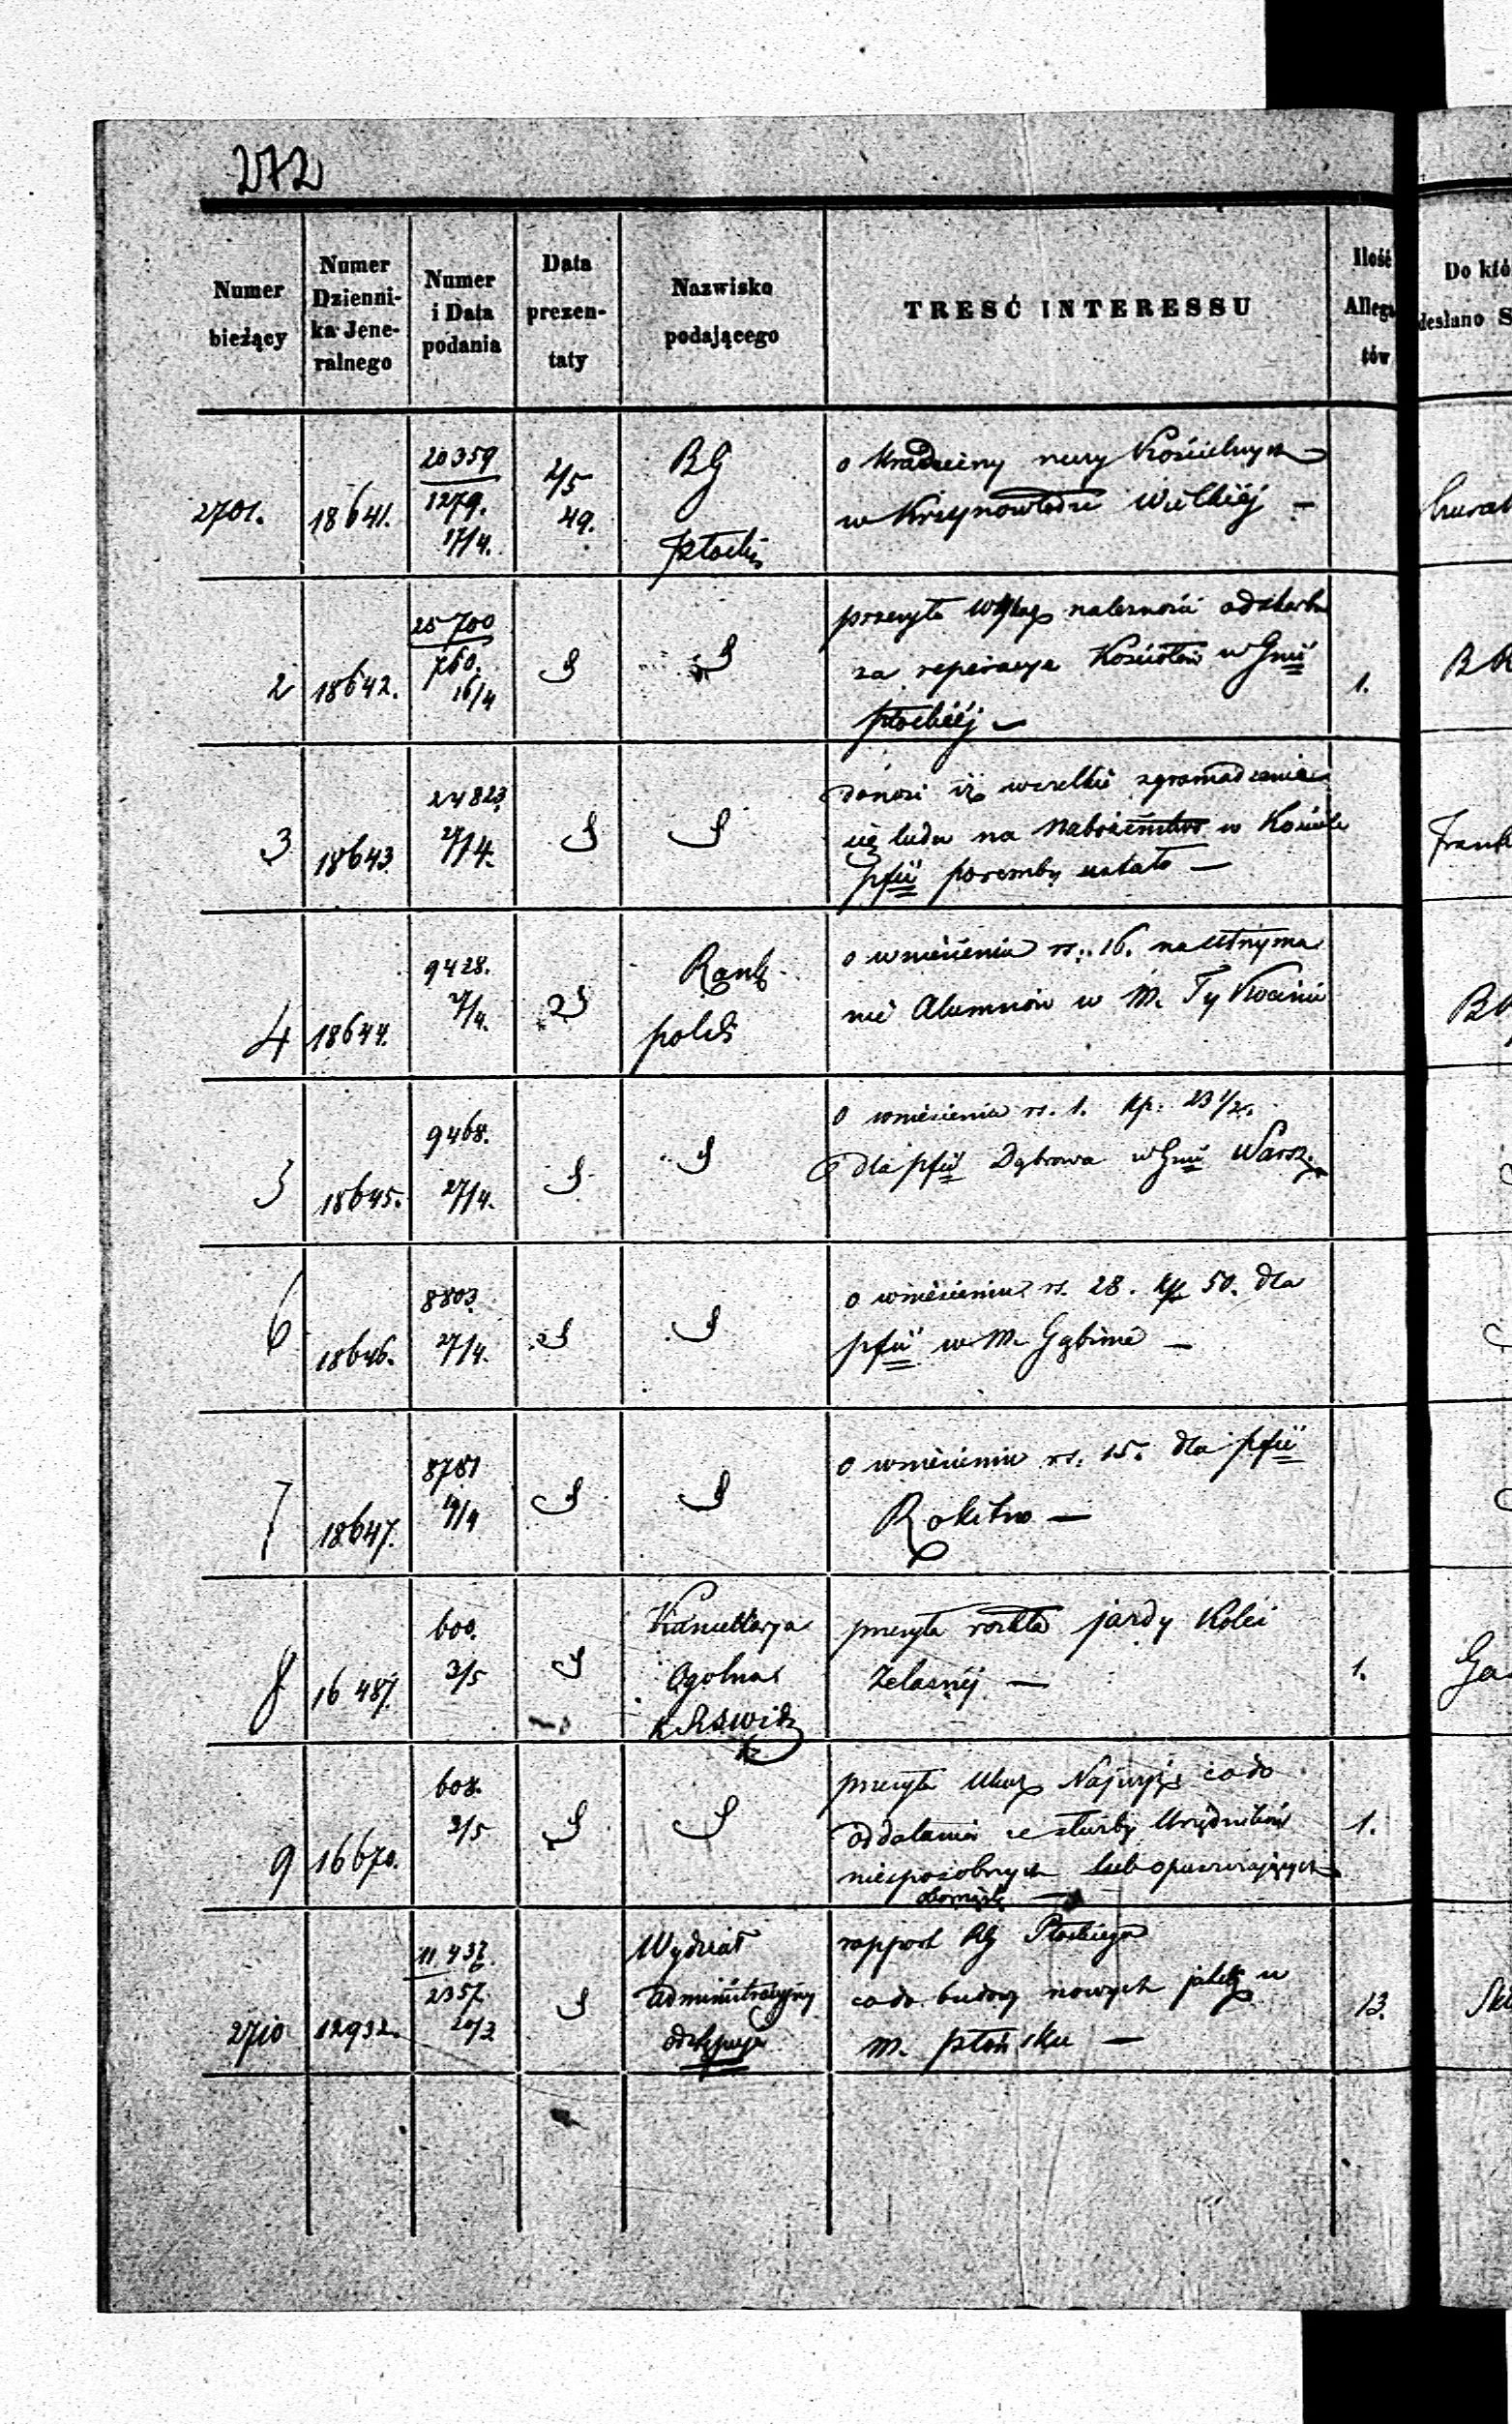 272
Numer bieżący
Numer Dzienni- ka Jene- ralnego
Numer i Data podania
Data prezen- taty
Nazwisko podającego
TRESĆ INTERESSU
Ilość Allega tów
Do któ
desłano S
2701. 18641. 20359 1279. 17/4. 2/5 49. RG Płocki
o kradzieży Kościelnych
w Krzynowłodze Wielkiéj —
2 18642. 25700 760. 16/4
przesyła należności od skarbu
za reperacye Kościołów w Gnii
płockiéj — 1.
3 18643 24823 27/4.
donosi iż wszelkie zgromadzenie
się ludu na Nabożeństwo w Kościele
pfii poremby ustało —
4 18644. 9428. 27/4. Bank polski
o wniesieniu rs. 16. na utrzyma
nie Alumnów w M. Tykocinie
5 18645. 9468. 27/4.
o wniesieniu rs. 1. kp. 23 1/2.
dla pfii Dąbrowa w Gnii Warsz.
6 18646. 8803. 27/4.
o wniesieniu rs. 28. kp 50. dla
pfii w M. Gąbinie —
7 18647. 8781 19/4
o wniesieniu rs. 15. dla pfii
Rokitno —
8 16487. 600. 3/5 Kancellarya Ogolna
przesyła rozkła jazdy Kolei
Żelaznéj — 1.
9 16670. 608. 3/5
przesyła Ukaz Najwyż co do
oddalania ze służby Urzędników
niesposobnych lub opuszczających 1.
2710 12932. 11,437. 2357 20/3 Wydział Administracyjny
rapport RG Płockiego
co do budowy nowych jatek w
m. płońsku — 13.